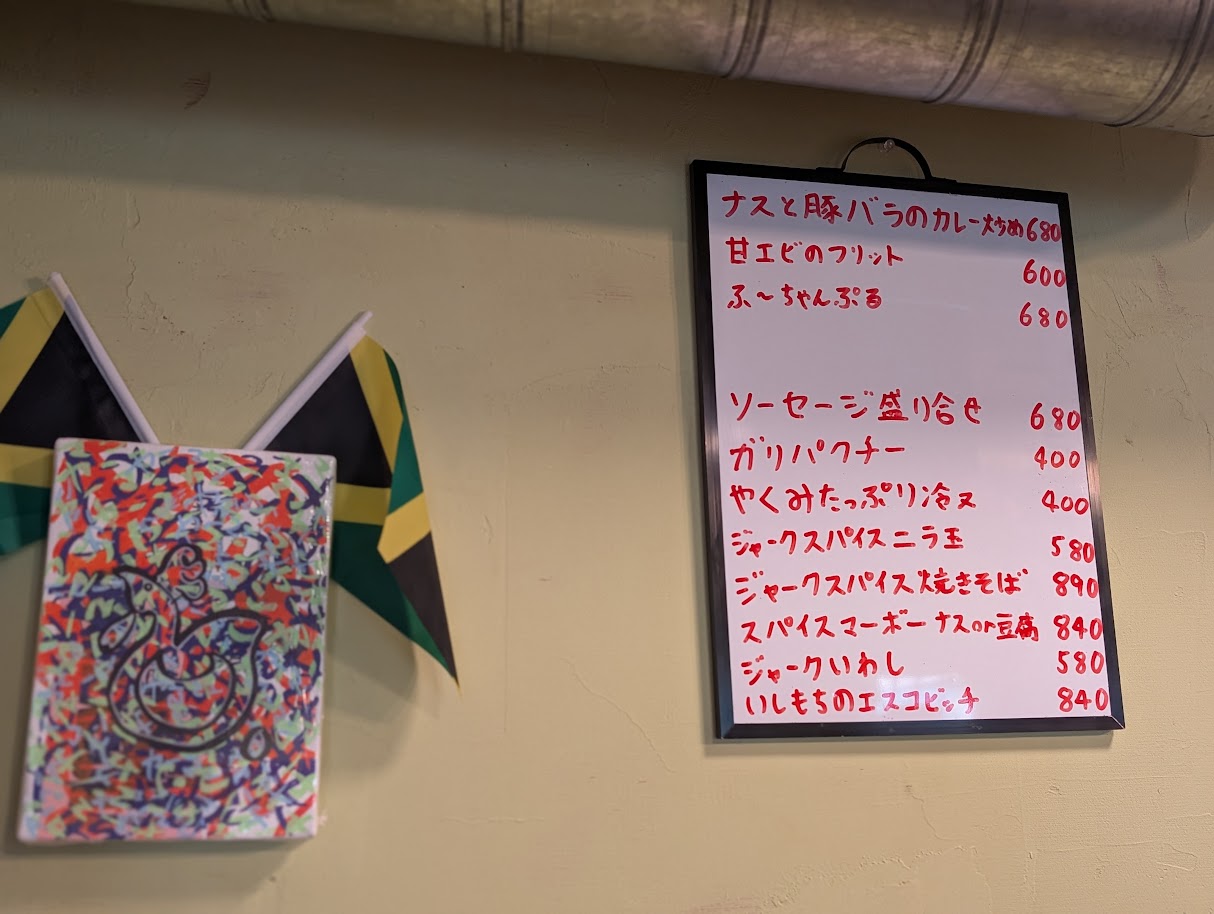 ナスと豚バラのカレー炒め 680
甘エビのフリット 600
ふ〜ちゃんぷる 680
ソーセージ盛り合せ 680
ガリパクチー 400
やくみたっぷり冷ヌ 400
ジャークスパイスニラ玉 580
ジャークスパイス焼きそば 890
スパイスマーボーナスor豆腐 840
ジャークいわし 580
いしもちのエスコビッチ 840